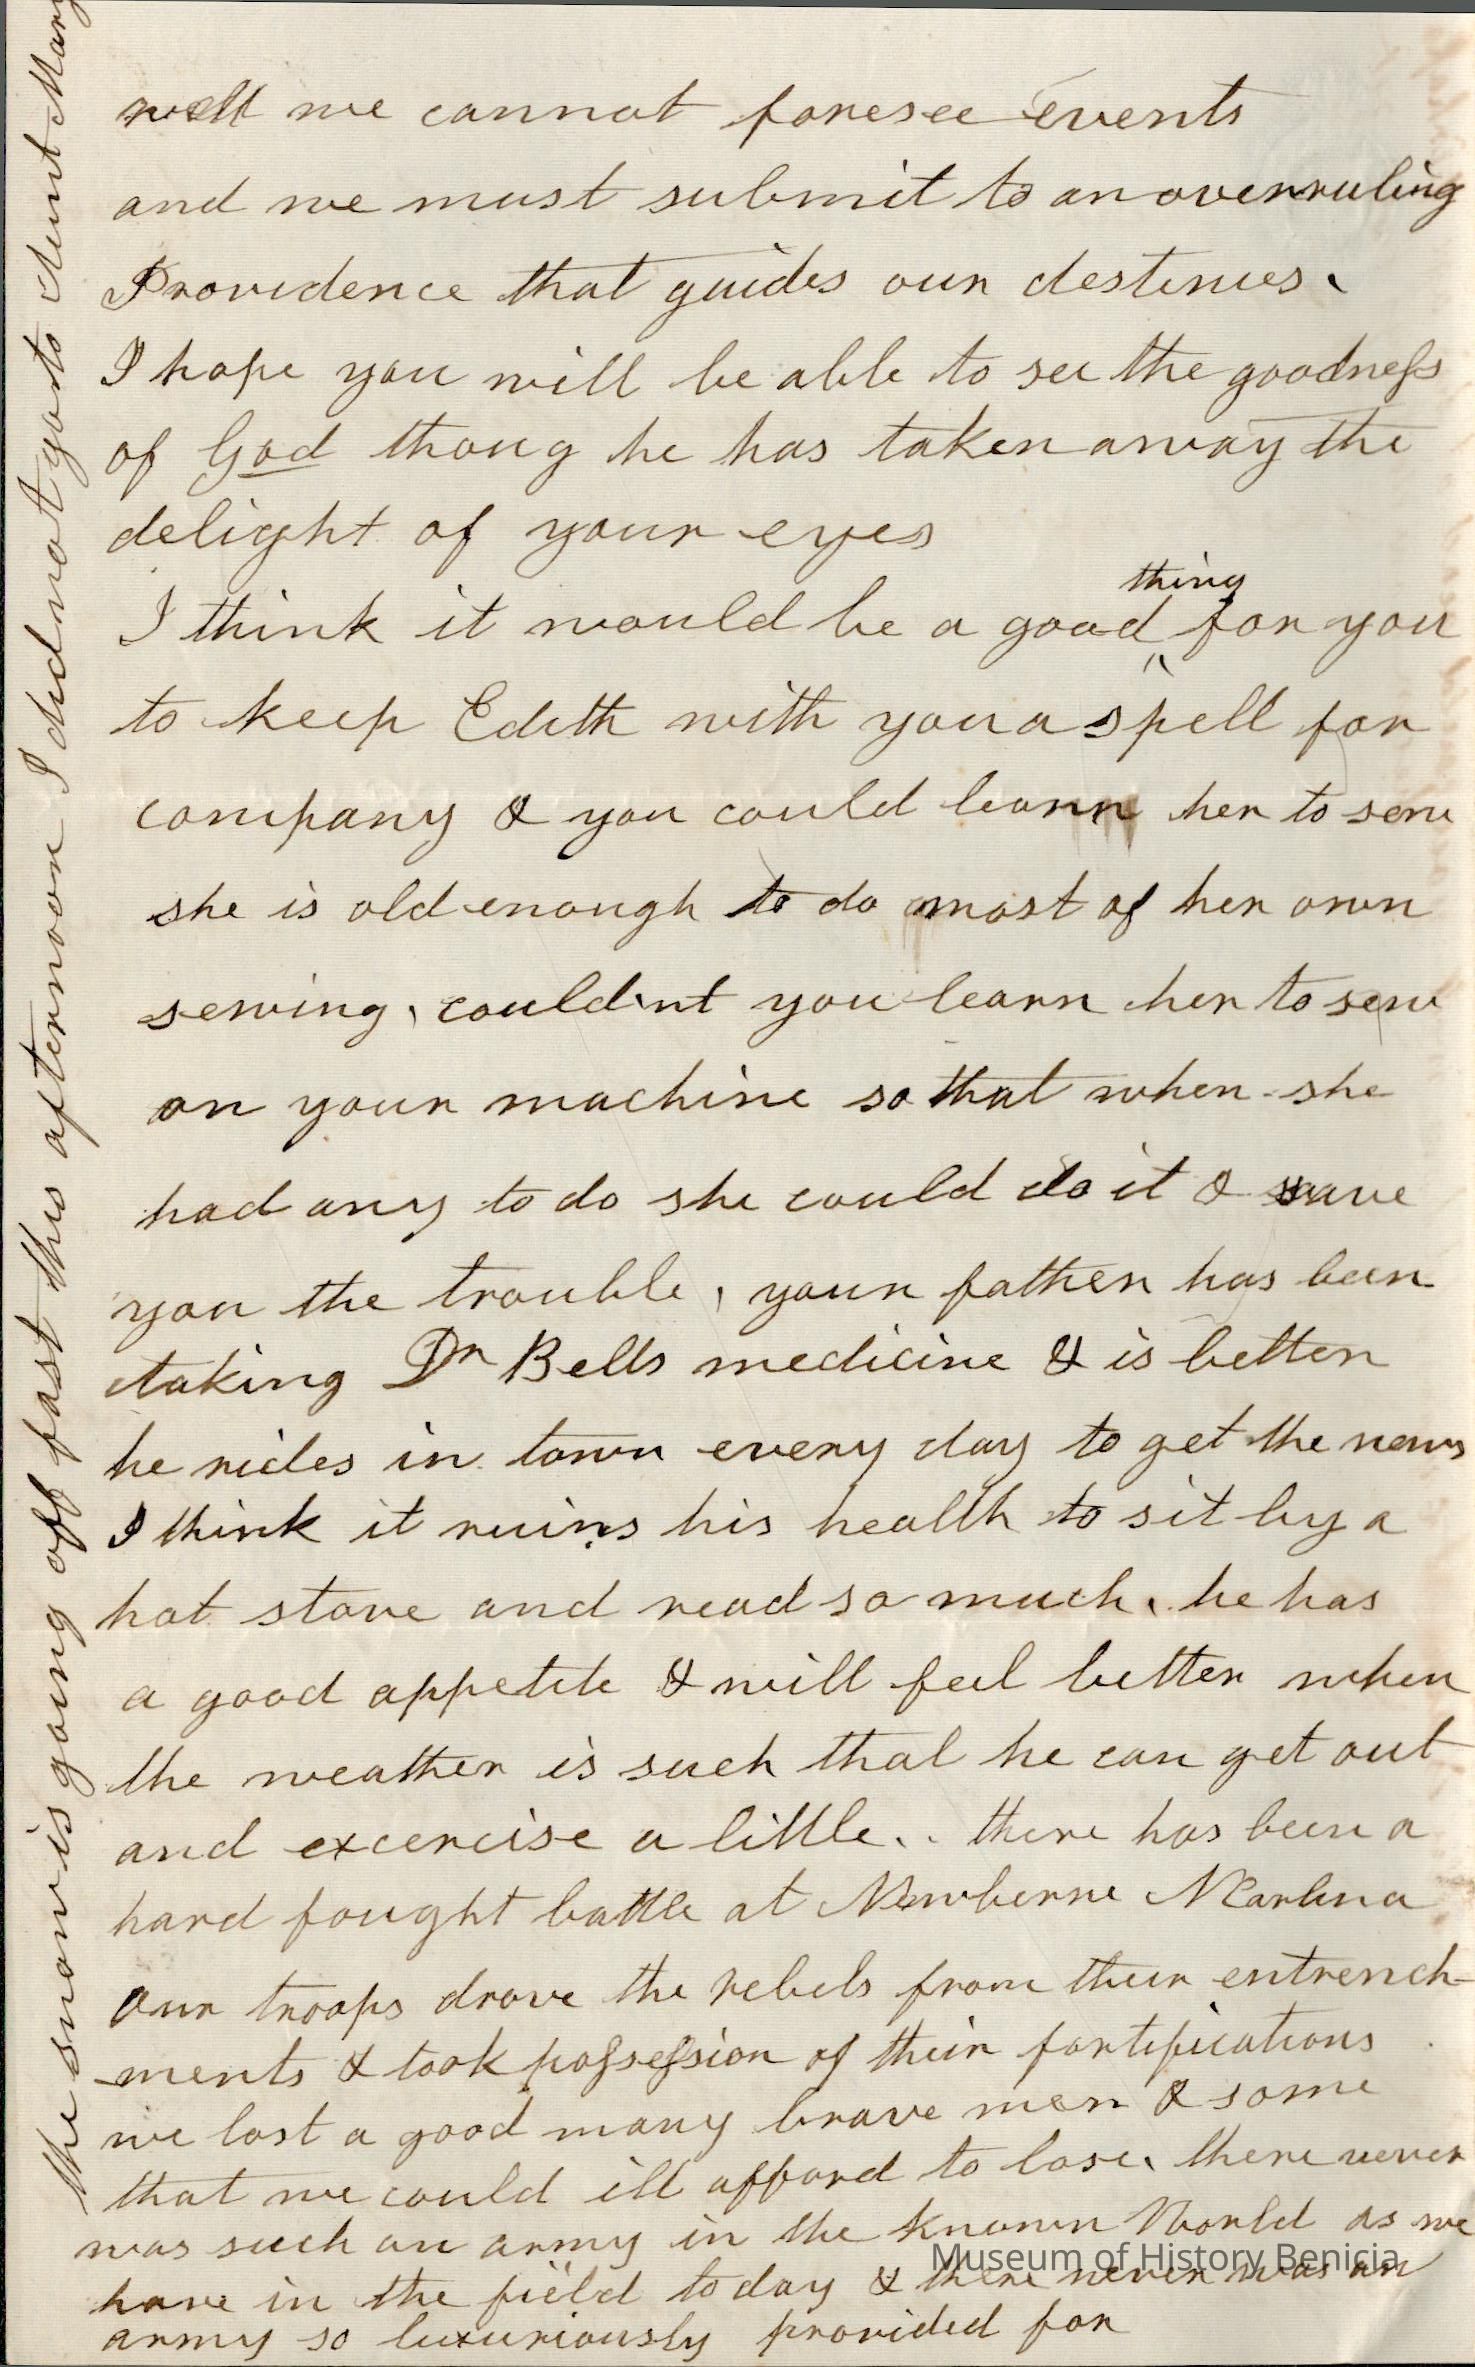 well we cannot foresee events
and we must submit to an overruling
Providence that guides our destinies.
I hope you will be able to see the goodness
of God thoug he has taken away the
delight of your eyes
I think it would be a good thing for you
to keep Edith with you a spell for
company & you could learn her to sew
she is old enough to do most of her own
sewing, could'nt you learn her to sew
on your machine so that when she
had any to do she could do it & save
you the trouble, your father has been
taking Dr Bells medicine & is better
he rides in town every day to get the news
I think it ruins his health to sit by a
hot stove and read so much, he has
a good appetite & will feel better when
the weather is such that he can get out
and excercise a little.. there has been a
hard fought battle at Newberne N Carlina
our troops drove the rebels from their entrench-
ments & took possession of their fortifications
we lost a good many brave men & some
that we could ill afford to lose, there never
was such an army in the known World as we
have in the field to day & there never was an
army so luxuriously provided for
the snow is going off fast this afternoon I did not go to Aunt Mary
Museum of History Benicia